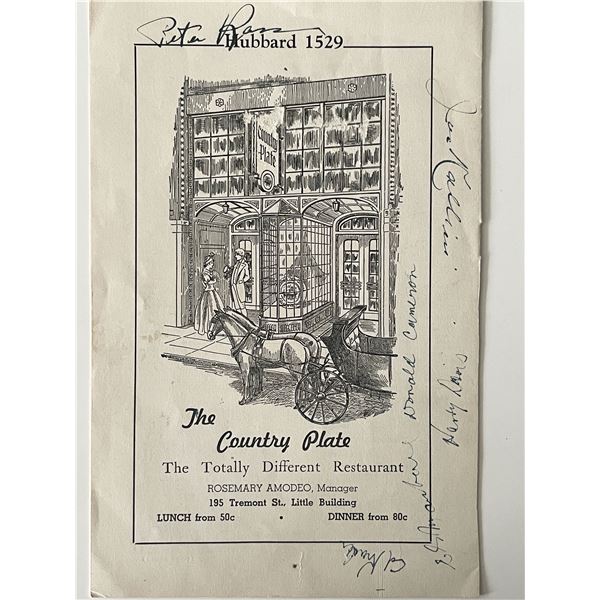 Peter
Hubbard 1529
Country
Plate
The
Country Plate
The Totally Different Restaurant
ROSEMARY AMODEO, Manager
195 Tremont St., Little Building
LUNCH from 50c • DINNER from 80c
Donald Cameron
Harry Davis
Ed